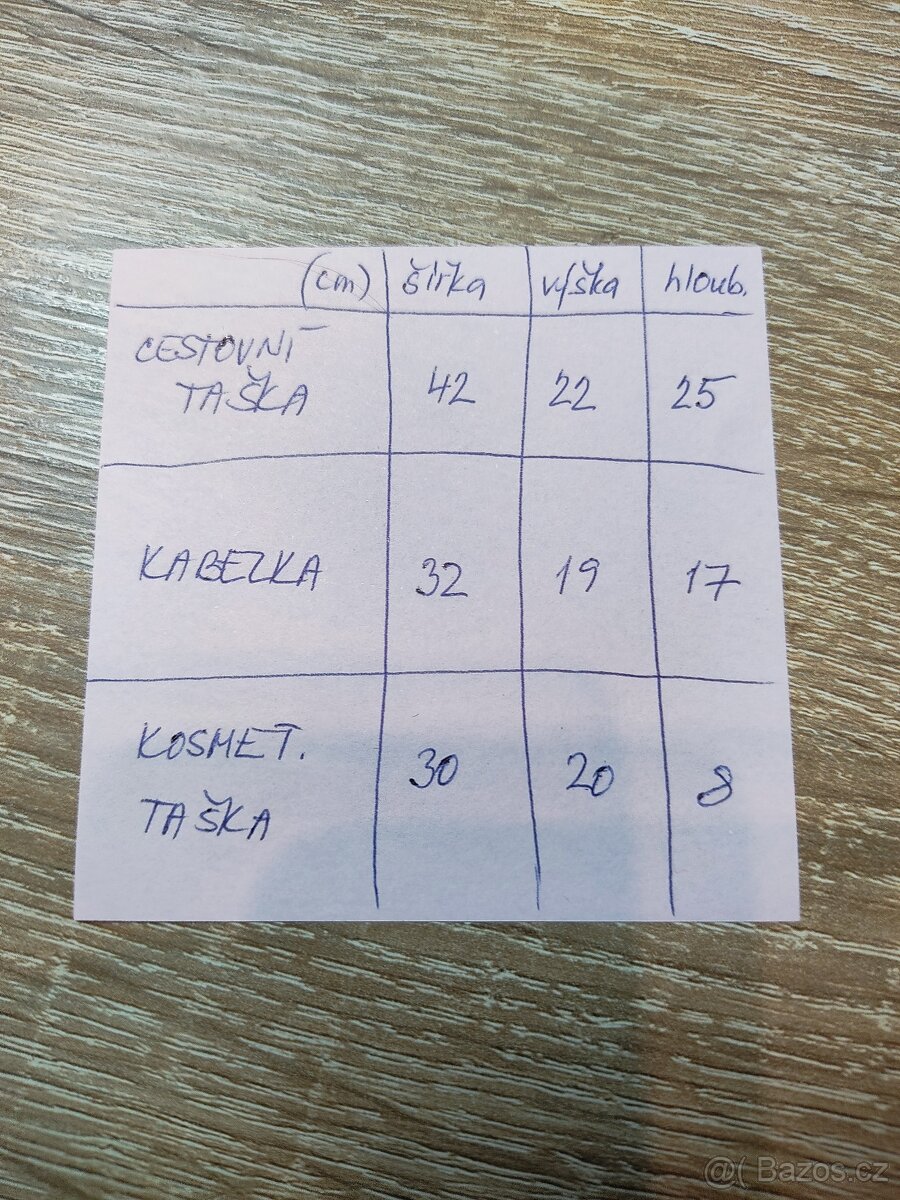 (cm) šířka výška hloub.
CESTOVNÍ
TAŠKA 42 22 25
KABELKA 32 19 17
KOSMET. 30 20 8
TAŠKA
@( Bazos.cz